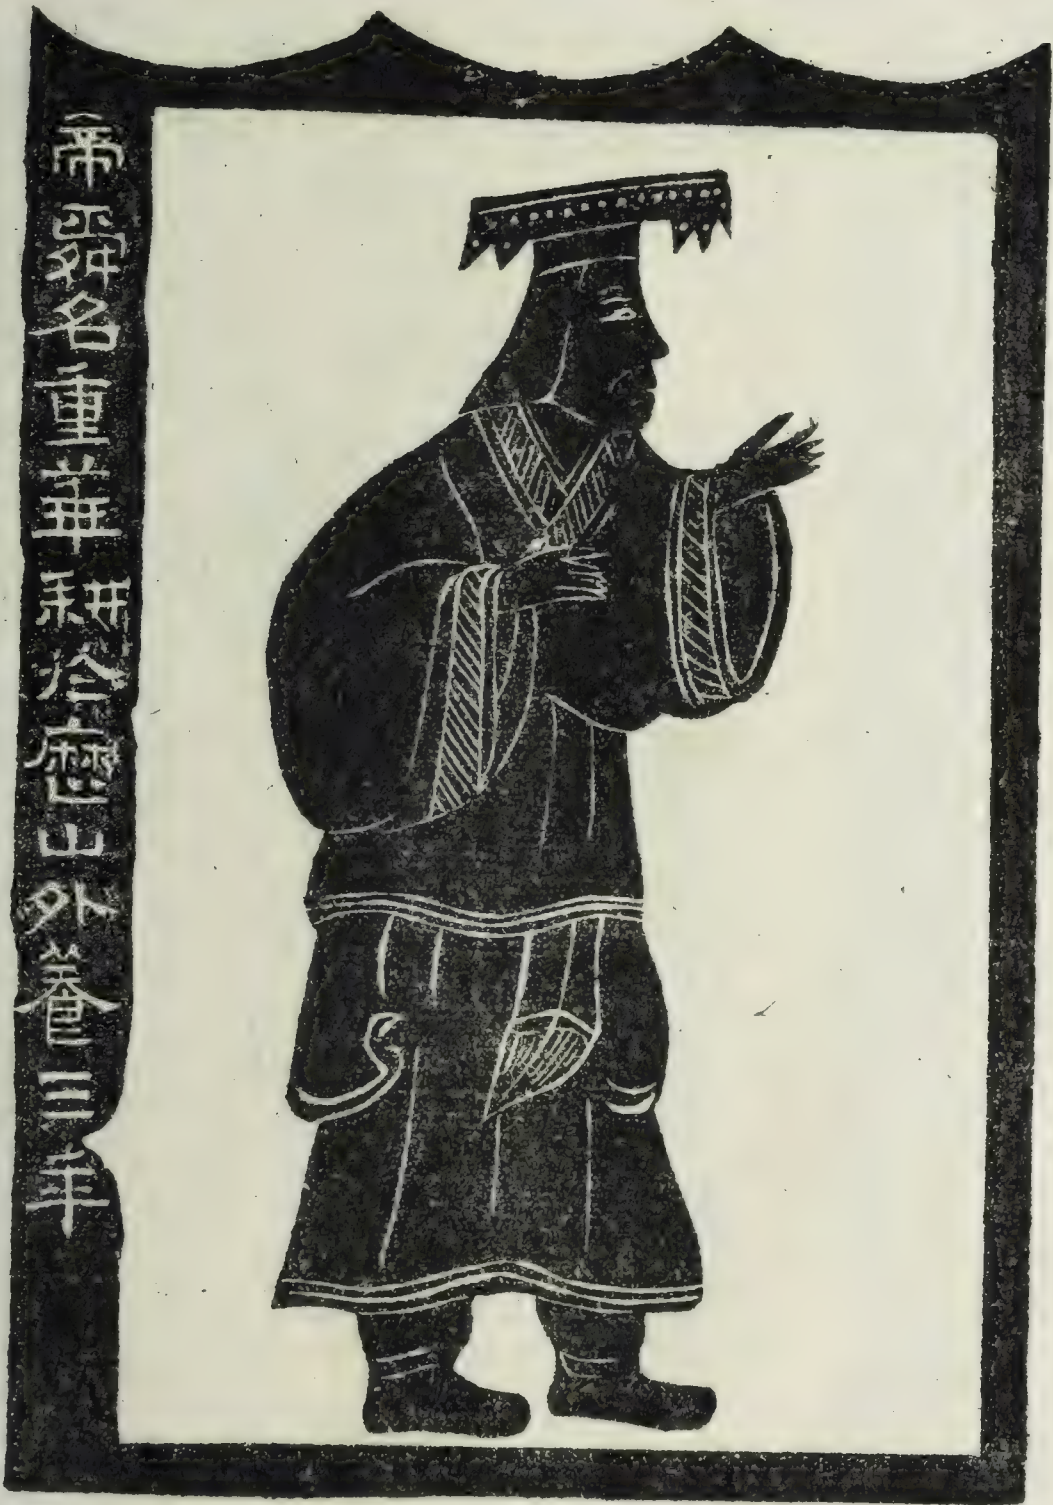 帝舜名重華耕於歷山外養三年